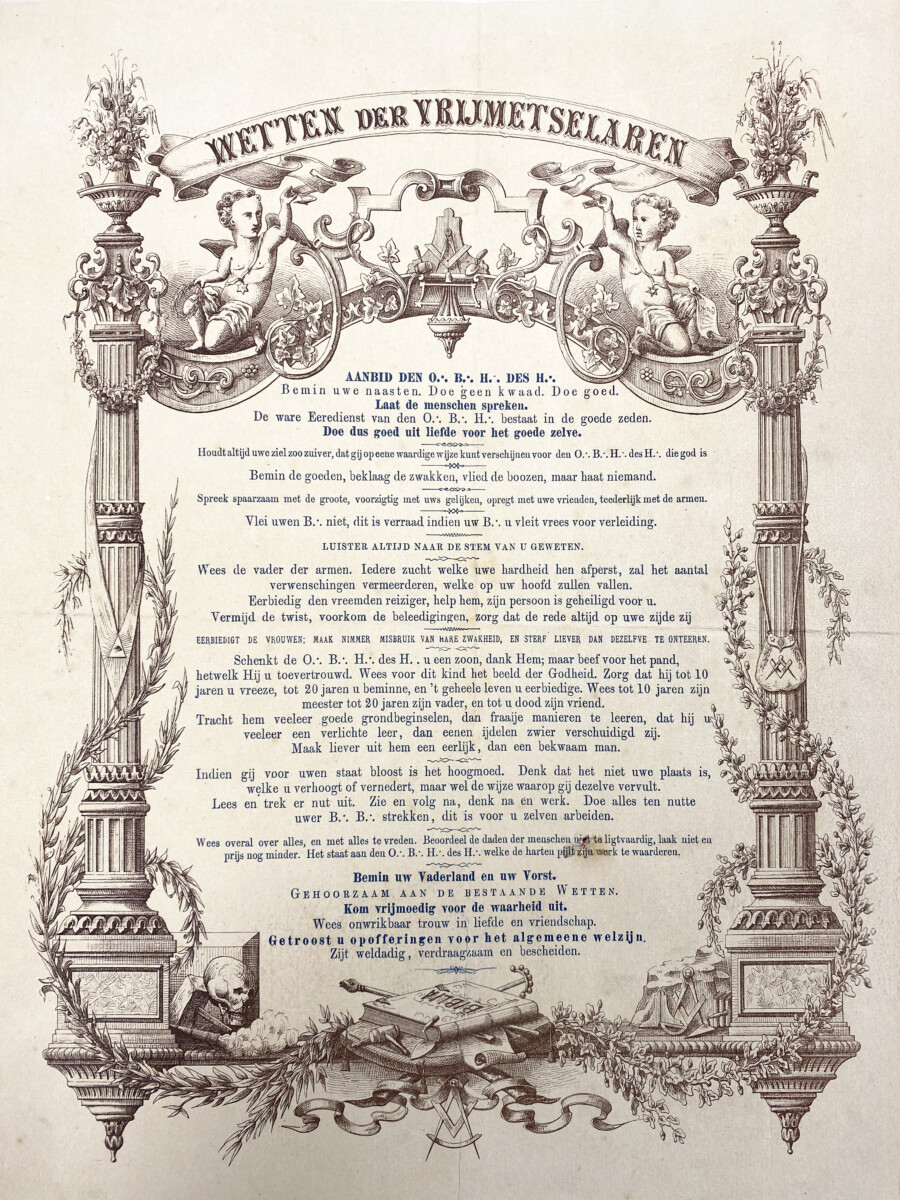 WETTEN DER VRIJMETSELAREN
AANBID DEN O.·. B.·. H.·. DES H.·.
Bemin uwe naasten. Doe geen kwaad. Doe goed.
Laat de menschen spreken.
De ware Eeredienst van den O.·. B.·. H.·. bestaat in de goede zeden.
Doe dus goed uit liefde voor het goede zelve.
Houdt altijd uwe ziel zoo zuiver, dat gij op eene waardige wijze kunt verschijnen voor den O.·. B.·. H.·. des H.·. die god is
Bemin de goeden, beklaag de zwakken, vlied de boozen, maar haat niemand.
Spreek spaarzaam met de groote, voorzigtig met uws gelijken, opregt met uwe vrienden, teederlijk met de armen.
Vlei uwen B.·. niet, dit is verraad indien uw B.·. u vleit vrees voor verleiding.
LUISTER ALTIJD NAAR DE STEM VAN U GEWETEN.
Wees de vader der armen. Iedere zucht welke uwe hardheid hen afperst, zal het aantal
verwenschingen vermeerderen, welke op uw hoofd zullen vallen.
Eerbiedig den vreemden reiziger, help hem, zijn persoon is geheiligd voor u.
Vermijd de twist, voorkom de beleedigingen, zorg dat de rede altijd op uwe zijde zij
EERBIEDIGT DE VROUWEN; MAAK NIMMER MISBRUIK VAN HARE ZWAKHEID, EN STERF LIEVER DAN DEZELFVE TE ONTEEREN.
Schenkt de O.·. B.·. H.·. des H.. u een zoon, dank Hem; maar beef voor het pand,
hetwelk Hij u toevertrouwd. Wees voor dit kind het beeld der Godheid. Zorg dat hij tot 10
jaren u vreeze, tot 20 jaren u beminne, en 't geheele leven u eerbiedige. Wees tot 10 jaren zijn
meester tot 20 jaren zijn vader, en tot u dood zijn vriend.
Tracht hem veeleer goede grondbeginselen, dan fraaije manieren te leeren, dat hij u
veeleer een verlichte leer, dan eenen ijdelen zwier verschuidigd zij.
Maak liever uit hem een eerlijk, dan een bekwaam man.
Indien gij voor uwen staat bloost is het hoogmoed. Denk dat het niet uwe plaats is,
welke u verhoogt of vernedert, maar wel de wijze waarop gij dezelve vervult.
Lees en trek er nut uit. Zie en volg na, denk na en werk. Doe alles ten nutte
uwer B.·. B.·. strekken, dit is voor u zelven arbeiden.
Wees overal over alles, en met alles te vreden. Beoordeel de daden der menschen niet te ligtvaardig, laak niet en
prijs nog minder. Het staat aan den O.·. B.·. H.·. des H.·. welke de harten peilt zijn werk te waarderen.
Bemin uw Vaderland en uw Vorst.
GEHOORZAAM AAN DE BESTAANDE WETTEN.
Kom vrijmoedig voor de waarheid uit.
Wees onwrikbaar trouw in liefde en vriendschap.
Getroost u opofferingen voor het algemeene welzijn.
Zijt weldadig, verdraagzaam en bescheiden.